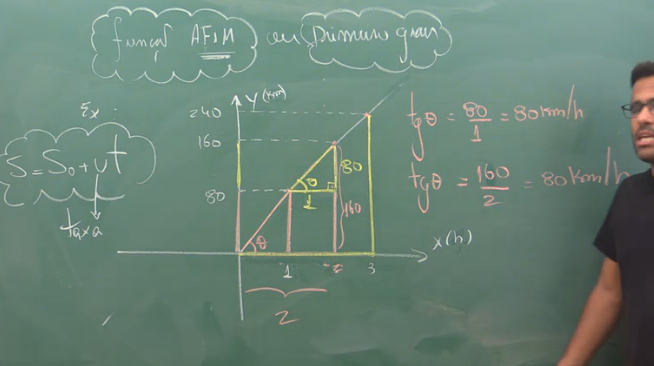 função AFIM ou Primeiro grau
Ex.
S = S₀ + vt
taxa
y (km)
240
160
80
θ
1
80
160
θ
x (h)
1
2
3
2
tgθ = 80/1 = 80 km/h
tgθ = 160/2 = 80 km/h